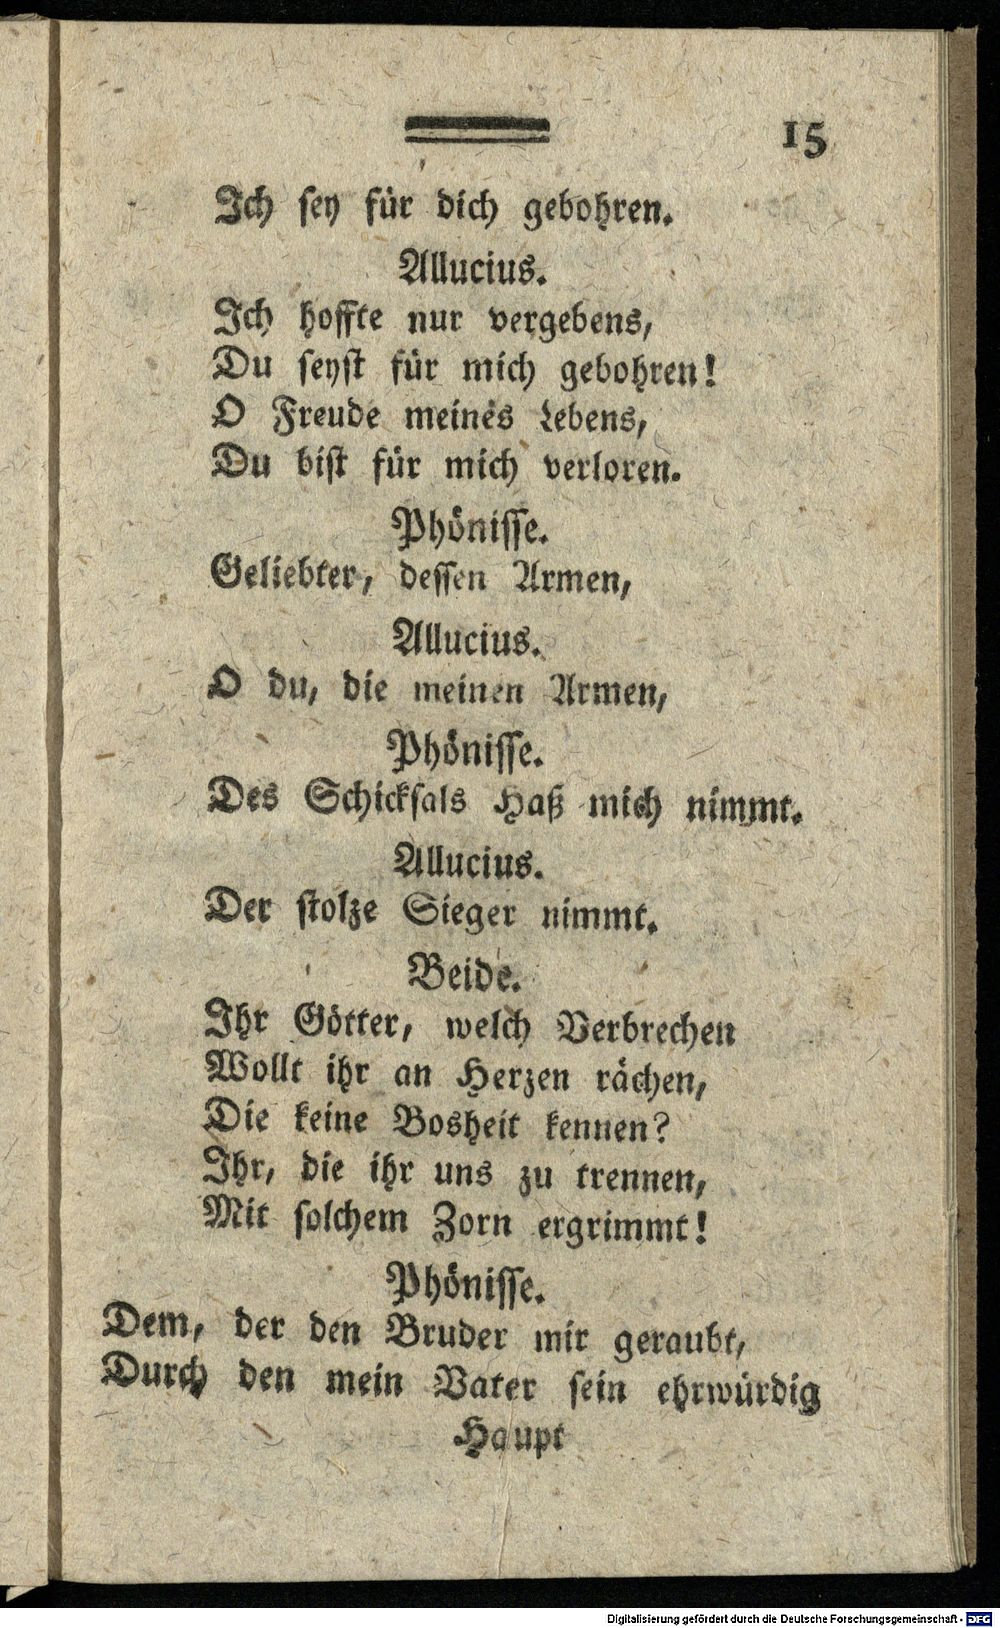 15
Ich sey für dich gebohren.
Allucius.
Ich hoffte nur vergebens,
Du seyst für mich gebohren!
O Freude meines Lebens,
Du bist für mich verloren.
Phönisse.
Geliebter, dessen Armen,
Allucius.
O du, die meinen Armen,
Phönisse.
Des Schicksals Haß mich nimmt.
Allucius.
Der stolze Sieger nimmt.
Beide.
Ihr Götter, welch Verbrechen
Wollt ihr an Herzen rächen,
Die keine Bosheit kennen?
Ihr, die ihr uns zu trennen,
Mit solchem Zorn ergrimmt!
Phönisse.
Dem, der den Bruder mir geraubt,
Durch den mein Vater sein ehrwürdig
Haupt
Digitalisierung gefördert durch die Deutsche Forschungsgemeinschaft - DFG